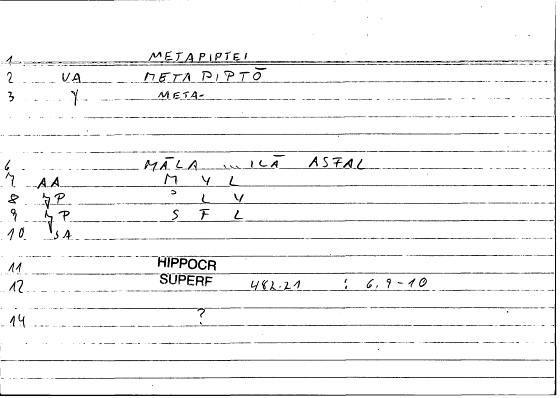 1 METAPIPTEI
2 VA METAPIPTŌ
3 META-
6 MĀLA ... ILĀ ASFAL
7 AA M Y L
8 P L Y
9 P S F L
10 SA
11 HIPPOCR
12 SUPERF 482.21 : 6.9-10
14 ?